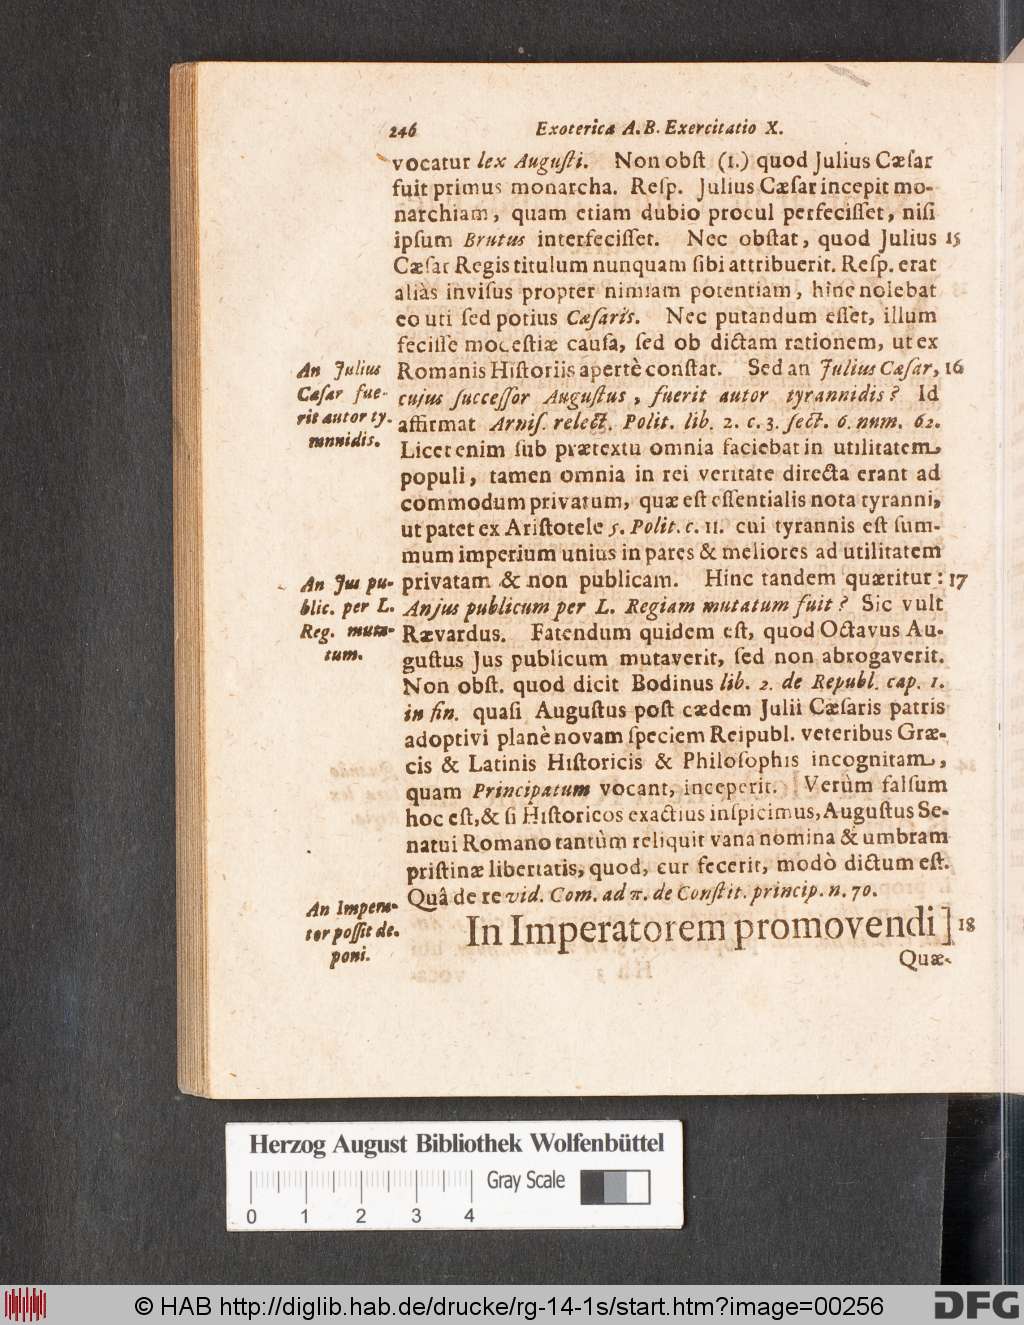 246 Exoterica A. B. Exercitatio X.
vocatur lex Auguſti. Non obſt (1.) quod Julius Cæſar
fuit primus monarcha. Reſp. Julius Cæſar incepit mo-
narchiam, quam etiam dubio procul perfeciſſet, niſi
ipſum Brutus interfeciſſet. Nec obſtat, quod Julius 15
Cæſar Regis titulum nunquam ſibi attribuerit. Reſp. erat
aliàs inviſus propter nimiam potentiam, hinc nolebat
eo uti ſed potius Cæſaris. Nec putandum eſſet, illum
feciſſe modeſtiæ cauſa, ſed ob dictam rationem, ut ex
Romanis Hiſtoriis apertè conſtat. Sed an Julius Cæſar, 16
cujus ſucceſſor Auguſtus, fuerit autor tyrannidis? Id
affirmat Arniſ. relect. Polit. lib. 2. c. 3. ſect. 6. num. 62.
Licet enim ſub prætextu omnia faciebat in utilitatem
populi, tamen omnia in rei veritate directa erant ad
commodum privatum, quæ eſt eſſentialis nota tyranni,
ut patet ex Ariſtotele 5. Polit. c. 11. cui tyrannis eſt ſum-
mum imperium unius in pares & meliores ad utilitatem
privatam & non publicam. Hinc tandem quæritur: 17
An jus publicum per L. Regiam mutatum fuit? Sic vult
Rævardus. Fatendum quidem eſt, quod Octavus Au-
guſtus Jus publicum mutaverit, ſed non abrogaverit.
Non obſt. quod dicit Bodinus lib. 2. de Republ. cap. 1.
in fin. quaſi Auguſtus poſt cædem Julii Cæſaris patris
adoptivi planè novam ſpeciem Reipubl. veteribus Græ-
cis & Latinis Hiſtoricis & Philoſophis incognitam,
quam Principatum vocant, inceperit. Verùm falſum
hoc eſt, & ſi Hiſtoricos exactius inſpicimus, Auguſtus Se-
natui Romano tantùm reliquit vana nomina & umbram
priſtinæ libertatis, quod, cur fecerit, modò dictum eſt.
Quâ de re vid. Com. ad π. de Conſtit. princip. n. 70.
In Imperatorem promovendi] 18
Quæ-
An Julius
Cæſar fue-
rit autor ty-
rannidis.
An Jus pu-
blic. per L.
Reg. muta-
tum.
An Impera-
tor poſſit de-
poni.
Herzog August Bibliothek Wolfenbüttel
Gray Scale
0 1 2 3 4
© HAB http://diglib.hab.de/drucke/rg-14-1s/start.htm?image=00256
DFG